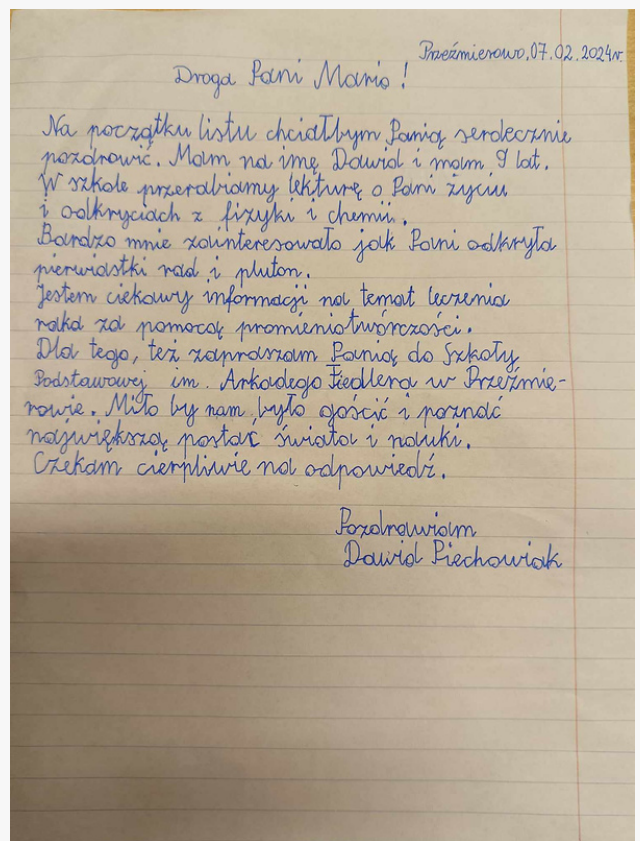 Przeźmierowo, 07.02.2024r.
Droga Pani Mario!
Na początku listu chciałbym Panią serdecznie
pozdrowić. Mam na imę Dawid i mam 9 lat.
W szkole przerabiamy lekturę o Pani życiu
i odkryciach z fizyki i chemii.
Bardzo mnie zainteresowało jak Pani odkryła
pierwiastki rad i pluton.
Jestem ciekawy informacji na temat leczenia
raka za pomocą promieniotwórczości.
Dla tego, też zapraszam Panią do Szkoły
Podstawowej im. Arkadego Fiedlera w Przeźmie-
rowie. Miło by nam było gościć i poznać
największą postać świata i nauki.
Czekam cierpliwie na odpowiedź.
Pozdrawiam
Dawid Piechowiak